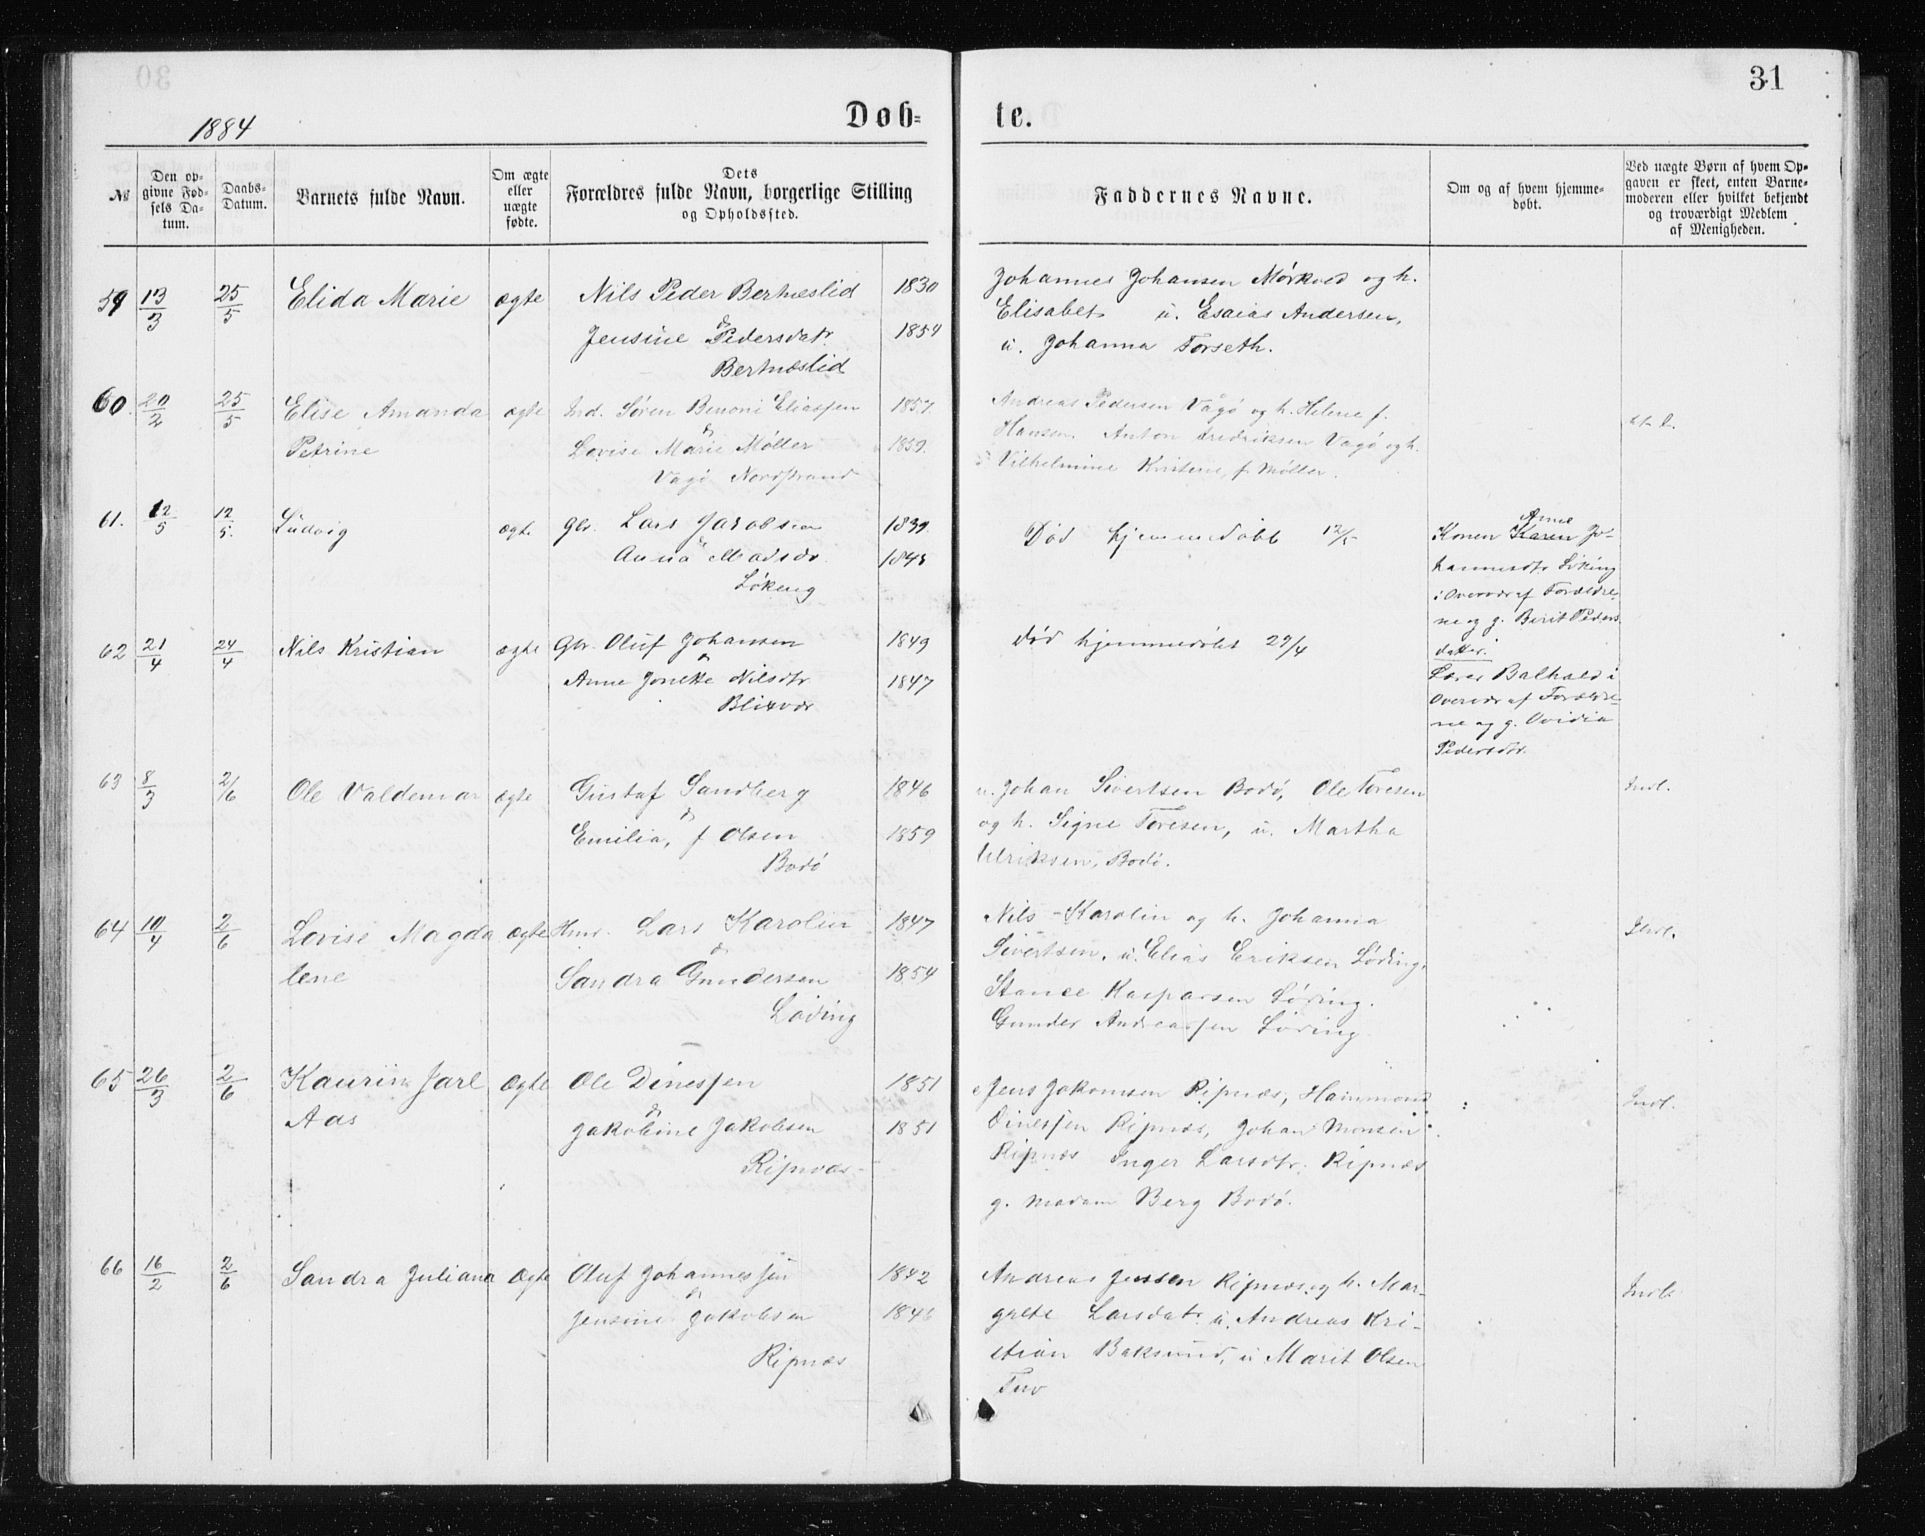 31
1884
Døb-
te.
№
Den op-
givne Fød-
sels Da-
tum.
Daabs-
Datum.
Barnets fulde Navn.
Om ægte
eller
uægte
fødte.
Dets
Forældres fulde Navn, borgerlige Stilling
og Opholdssted.
Faddernes Navne.
Om og af hvem hjemme-
døbt.
Ved uægte Børn af hvem Op-
gaven er skeet, enten Barne-
moderen eller hvilket bekjendt
og troværdigt Medlem
af Menigheden.
59 13/3 25/5 Elida Marie ægte Nils Peder Bertneslid 1830
& Jensine Pedersdatr 1854
Bertnæslid
Johannes Johansen Mørkved og h.
Elisabet u. Esaias Andersen,
u. Johanna Forseth.
60. 20/2 25/5 Elise Amanda ægte Ind. Søren Benoni Eliassen 1857.
Petrine & Lovise Marie Møller 1859.
Vågø Nordstrand
Andreas Pedersen Vågø og h. Helene f.
Hansen. Anton Fredriksen Vagø og h.
Vilhelmine Kristine, f. Møller.
61. 12/5 12/5. Ludvig ægte Gbr. Lars Jakobsen 1839.
& Anna Madsdr. 1845
Løkeng
Død hjemmedøbt 12/5
Anne
Konen Karen Jo-
hannesdtr Løking
i Overvær af Forældre
ne og g. Berit Peders
datter.
62 21/4 24/4 Nils Kristian ægte Gbr. Oluf Johansen 1849
& Anne Jonette Nilsdtr 1847
Blixvær
død hjemmedøbt 29/4
Lærer Balhald i
Overvær af Forældre
ne og g. Ovidia
Pedersdtr.
63 8/3 2/6 Ole Valdemar ægte Gustaf Sandberg 1846
& Emilia, f Olsen 1859
Bodø
u. Johan Sivertsen Bodø, Ole Toresen
og h. Signe Toresen, u. Martha
Ulriksen, Bodø.
Indl.
64 10/4 2/6 Lovise Magda ægte Hmd. Lars Karolin 1847
lene & Sandra Gundersen 1854
Løding
Nils Karolin og h. Johanna
Sivertsen, u. Elias Eriksen Løding.
Stance Kasparsen Løding.
Gunder Andreassen Løding
Indl.
65 26/3 2/6 Kaurin Jarl Ægte Ole Dinessen 1851
Aas & Jakobine Jakobsen 1851
Ripnæs
Jens Jakobsen Ripnæs, Hammond
Dinessen Ripnæs, Johan Monsen
Ripnæs Inger Larsdtr. Ripnæs
g. madam Berg Bodø.
Indl.
66 16/2 2/6 Sandra Juliana Ægte Oluf Johannessen 1842
& Jensine Jakobsen 1846
Ripnæs
Andreas Jensen Ripnæs og h. Mar-
grete Larsdatr. u. Andreas Kri-
stian Baksund, u Marit Olsen
Tuv
Indl.